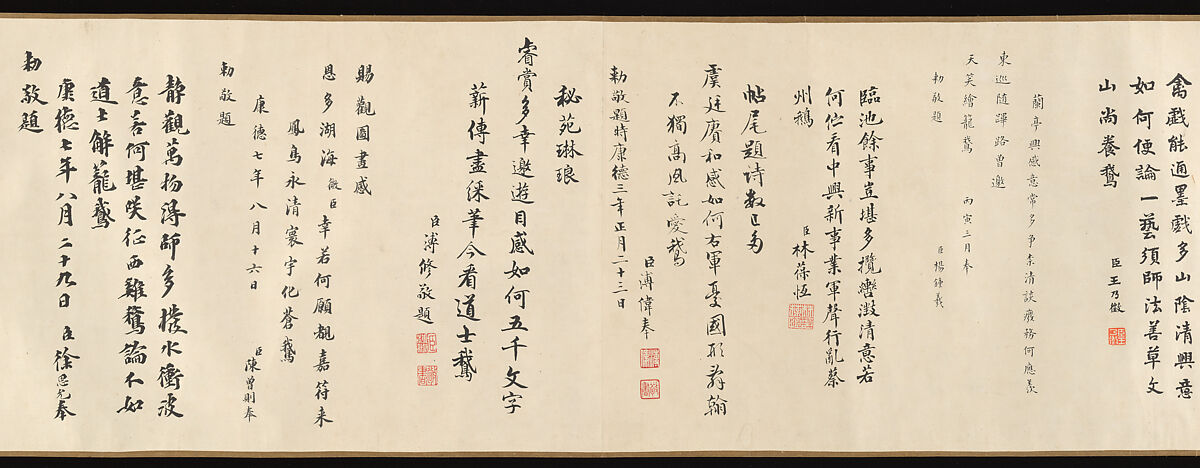 禽戲能通墨戲多山陰清興意
如何便論一藝須師法善草文
山尚養鵞
臣王乃徵
蘭亭興感意常多爭柰清談癈務何應羨
東巡随蹕路曾邀
天笑繪龍鵞 丙寅三月奉
勅敬題
臣楊鍾羲
臨池餘事豈堪多攬轡澂清意若
何佇看中興新事業軍聲行亂蔡
州鵝
臣林葆恆
帖尾題诗数已多
虞廷賡和感如何右軍憂國形翰
不獨高風託愛鵞
臣溥偉奉
勅敬題時康德三年正月二十三日
秘苑琳琅
睿賞多幸邀遊目感如何五千文字
薪傳盡綵筆今看道士鵞
臣溥修敬題
賜觀圖畫感
恩多湖海微臣幸若何願覩嘉符来
鳳鳥永清寰宇化蒼鵞
康德七年八月十六日
臣陳曾則奉
勅敬題
静觀萬物得師多撥水衝波
意若何堪咲征西雞鶩論不如
道士解蘢鵞
康德七年八月二十九日 臣徐思允奉
勅敬題